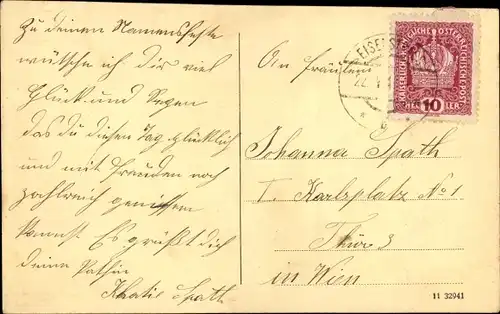 Zu deinem Namensfeste
wünsche ich dir viel
Glück und Segen
das du diesen Tag glücklich
und mit Freuden noch
zahlreich geniessen
kannst. Es grüßt dich
deine Pathin
Khatie Spath
An Fräulein
Johanna Spath
I. Karlsplatz No 1
Thür 3
in Wien
KAISERLICHE KÖNIGLICHE ÖSTERREICHISCHE POST
HELLER 10 HELLER
22.
11 32941